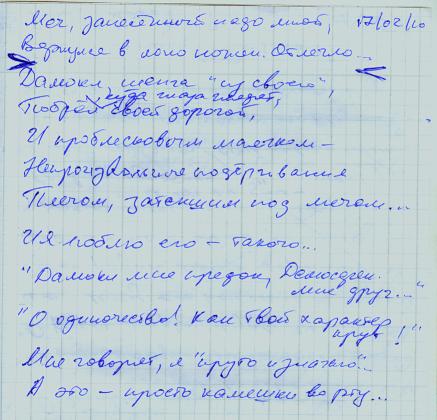 Меч, занесённый надо мной, 17/02/10
Вернулся в лоно ножен. Отлегло...
Дамокл, шепча "из своего",
куда глаза глядят,
Побрёл своей дорогой,
И проблесковым маячком –
Непроизвольные подёргивания
Плечом, затекшим под мечом...
И я люблю его – такого...
"Дамокл мне предок, Демосфен
мне друг..."
"О одиночество! Как твой характер
крут!"
Мне говорят, я "круто излагаю"...
А это – просто камешки во рту...